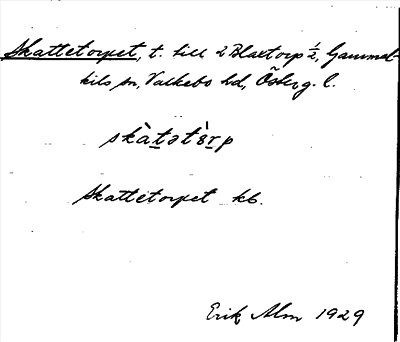 Skattetorpet, t. till 2 Blaxtorp ½, Gammal-
kils sn, Valkebo hd, Österg. l.
skàt̲ətòr̲p
Skattetorpet kb.
Erik Alm 1929